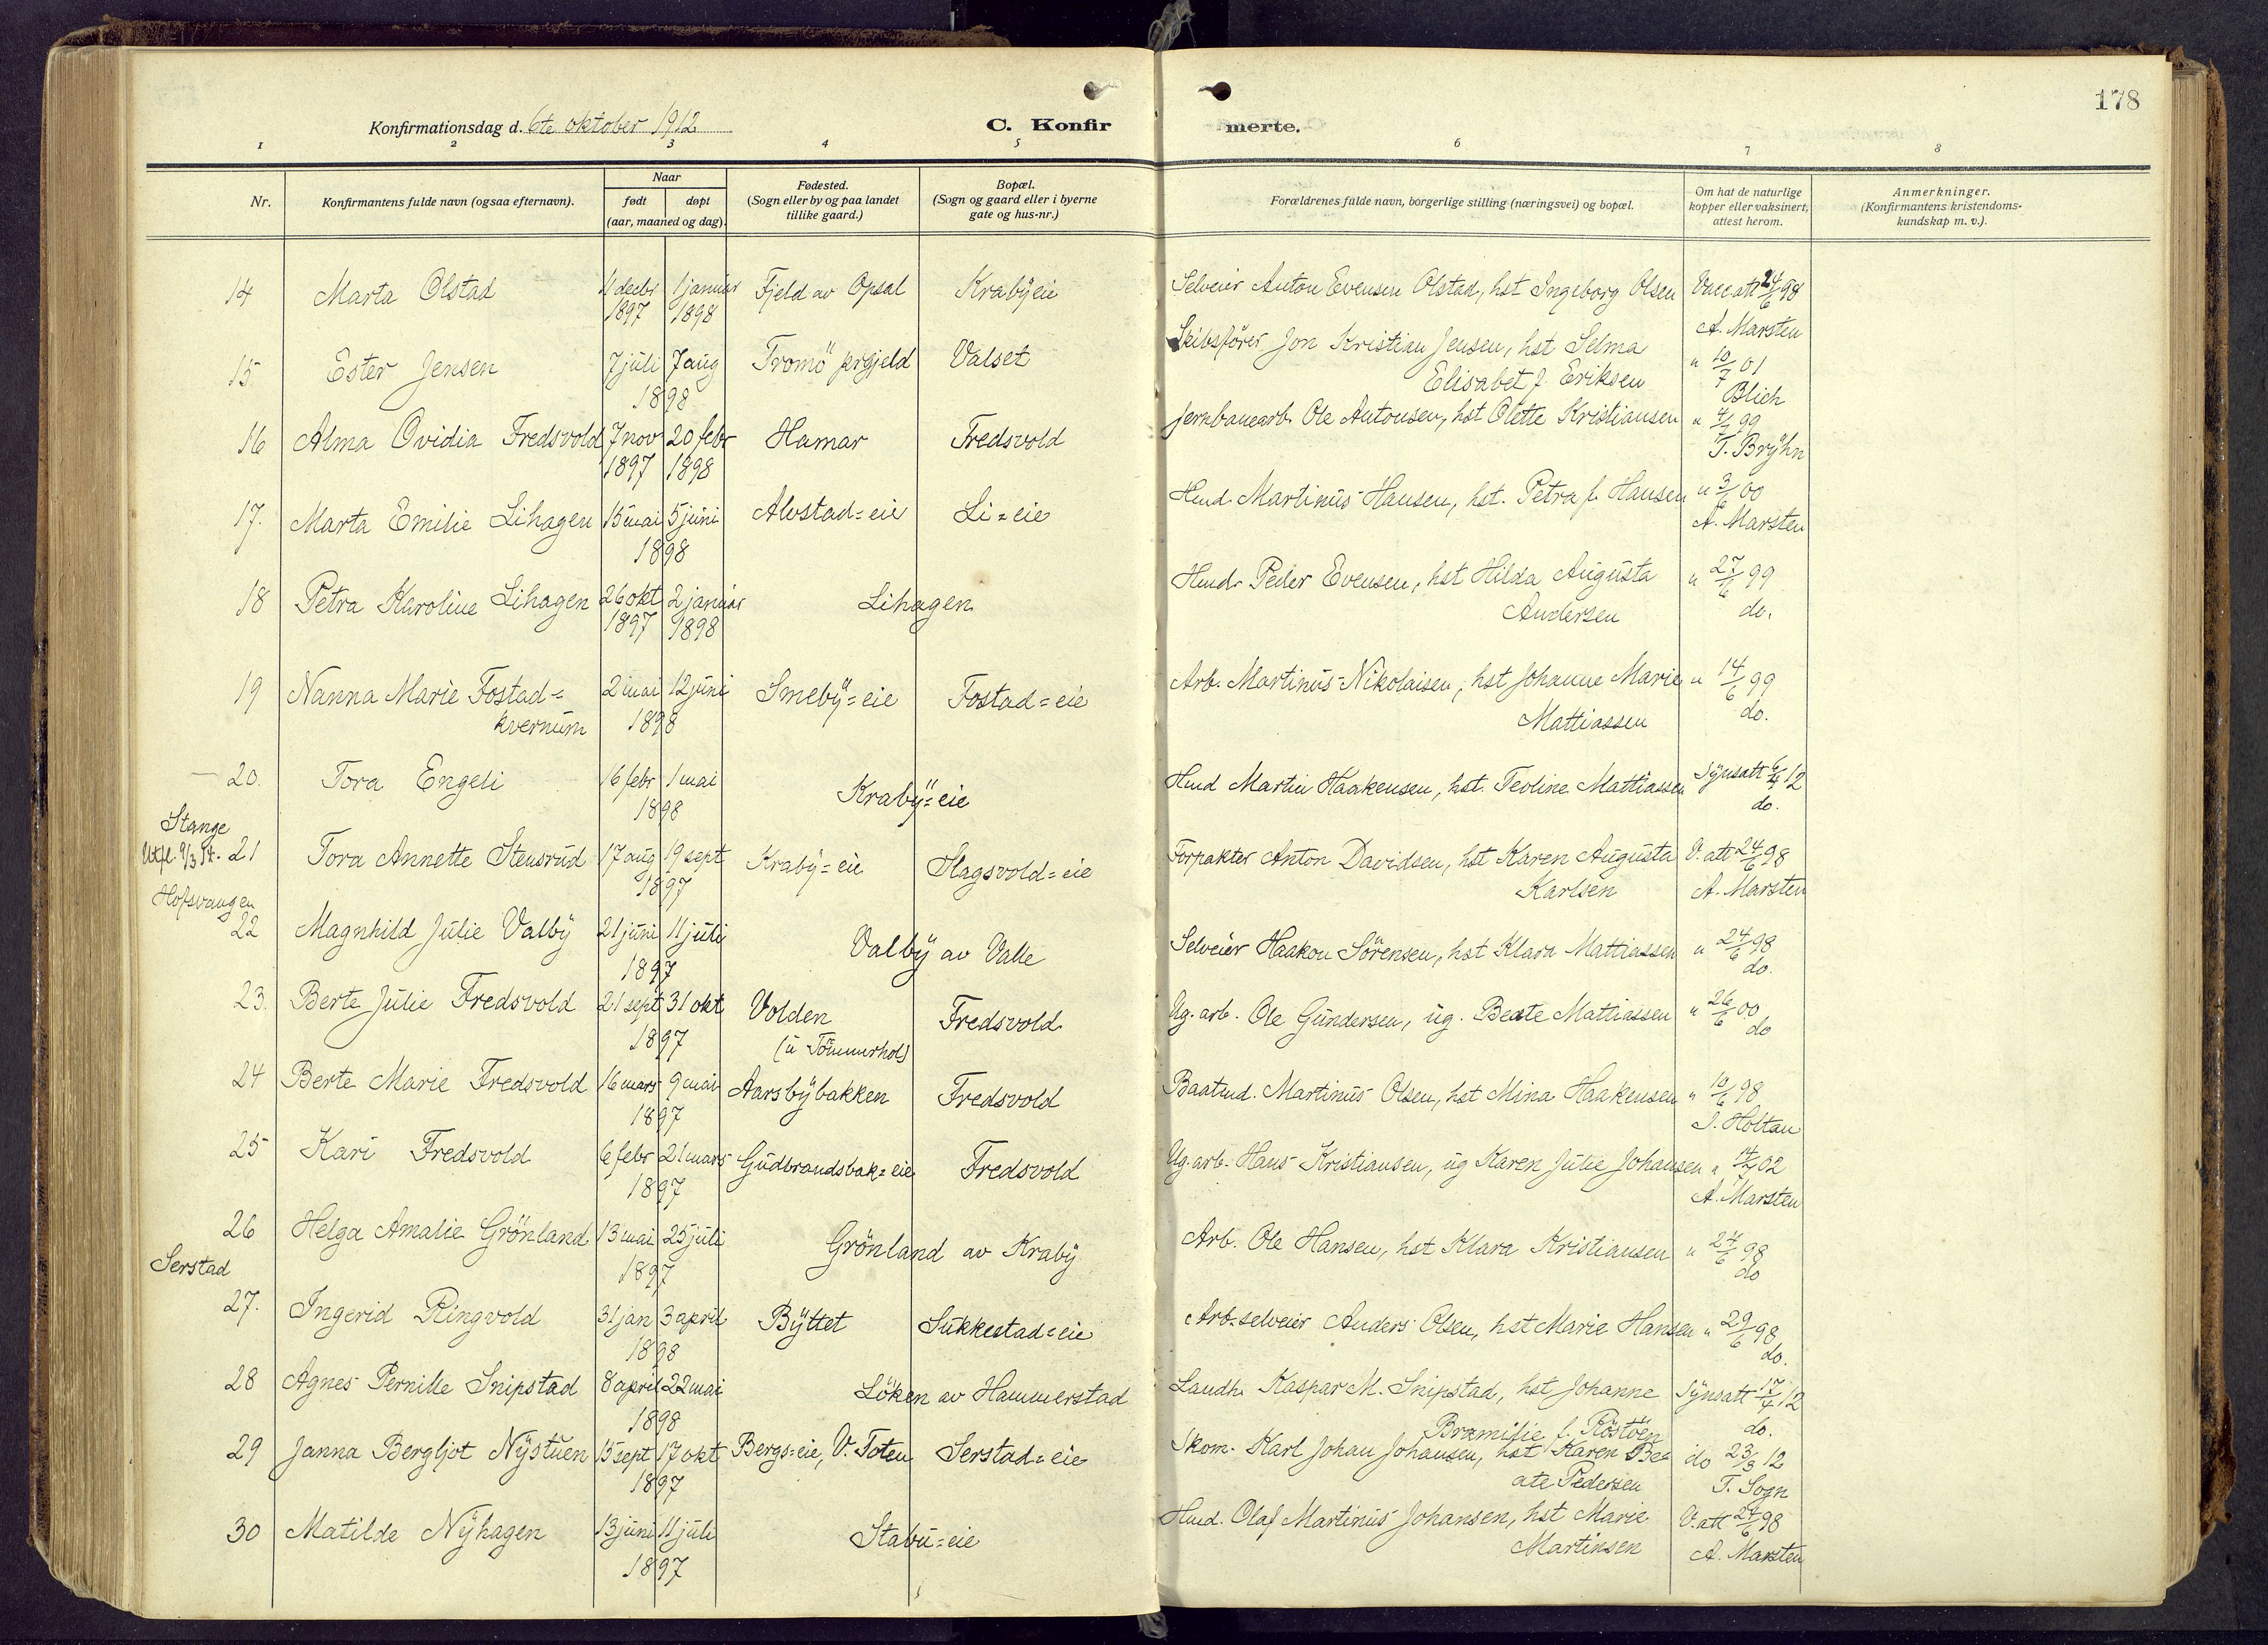 178
Konfirmationsdag d. 6te oktober 1912
C. Konfirmerte.
1 2 3 4 5 6 7 8
Nr.
Konfirmantens fulde navn (ogsaa efternavn).
Naar
født døpt
(aar, maaned og dag).
Fødested.
(Sogn eller by og paa landet
tillike gaard.)
Bopæl.
(Sogn og gaard eller i byerne
gate og hus-nr.)
Forældrenes fulde navn, borgerlige stilling (næringsvei) og bopæl.
Om hat de naturlige
kopper eller vaksinert,
attest herom.
Anmerkninger.
(Konfirmantens kristendoms-
kundskap m. v.).
14 Marta Olstad 11 decbr 1 januar Fjeld av Opsal Krabÿeie Selveier Anton Evensen Olstad, hst Ingeborg Olsen Vacc att 24/6 98
1897 1898 A. Marsten
15 Ester Jensen 7 juli 7 aug Tromö prgjeld Valset Skibsförer Jon Kristian Jensen, hst Selma " 10/7 01
1898 Elisabet f. Eriksen Blich
16 Alma Ovidia Fredsvold 7 nov 20 febr Hamar Fredsvold Jernbanearb. Ole Antonsen, hst Olette Kristiansen " 4/7 99
1897 1898 T. Brÿhn
17. Marta Emilie Lihagen 15 mai 5 juni Alvstad=eie Li=eie Hmd. Martinus Hansen, hst. Petra f. Hansen " 3/6 00
1898 A. Marsten
18 Petra Karoline Lihagen 26 okt 2 januar Lihagen Hmd. Peder Evensen, hst Hilda Augusta " 27/6 99
1897 1898 Andersen do.
19 Nanna Marie Fostad= 2 mai 12 juni Smebÿ=eie Fostad=eie Arb. Martinus Nikolaisen, hst Johanne Marie " 14/6 99
kvernum 1898 Mattiassen do.
— 20. Tora Engeli 16 febr 1 mai Krabÿ=eie Hmd Martin Haakensen, hst. Teoline Mattiassen Sÿnsatt 6/4 12
1898 do.
Stange
Utfl. 9/3 14. 21 Tora Annette Stensrud 17 aug 19 sept Krabÿ=eie Slagsvold=eie Forpakter Anton Davidsen, hst Karen Augusta V. att 24/6 98
1897 Karlsen A. Marsten
Hofsvangen
22 Magnhild Julie Valbÿ 21 juni 11 juli Valbÿ av Valle Selveier Haakon Sörensen, hst Klara Mattiassen " 24/6 98
1897 do.
23. Berte Julie Fredsvold 21 sept 31 okt Volden Fredsvold Ug. arb. Ole Gundersen, ug. Beate Mattiassen " 26/6 00
1897 (u Tömmerhol) do
24 Berte Marie Fredsvold 16 mars 9 mai Aarsbÿbakken Fredsvold Baatmd. Martinus Olsen, hst Mina Haakensen " 10/6 98
1897 J. Holtan
25 Kari Fredsvold 6 febr 21 mars Gudbrandsbak=eie Fredsvold Ug. arb. Hans Kristiansen, ug Karen Julie Johansen " 14/7 02
1897 A. Marsten
26 Helga Amalie Grönland 13 mai 25 juli Grönland av Krabÿ Arb. Ole Hansen, hst Klara Kristiansen " 24/6 98
1897 do
Serstad
27. Ingerid Ringvold 31 jan 3 april Bÿttet Sukkestad=eie Arb.selveier Anders Olsen, hst Marie Hansen " 29/6 98
1898 do.
28 Agnes Pernille Snipstad 8 april 22 mai Löken av Hammerstad Landh. Kaspar M. Snipstad, hst Johanne Sÿnsatt 17/4 12
1898 Bramilie f. Röstöen do.
29 Janna Bergljot Nÿstuen 15 sept 17 okt Bergs=eie, V. Toten Serstad=eie Skom. Karl Johan Johansen, hst Karen Be= do 23/3 12
1897 ate Pedersen T. Sogn
30 Matilde Nÿhagen 13 juni 11 juli Stabu=eie Hmd. Olaf Martinus Johansen, hst Marie V. att 24/6 98
1897 Martinsen A. Marsten